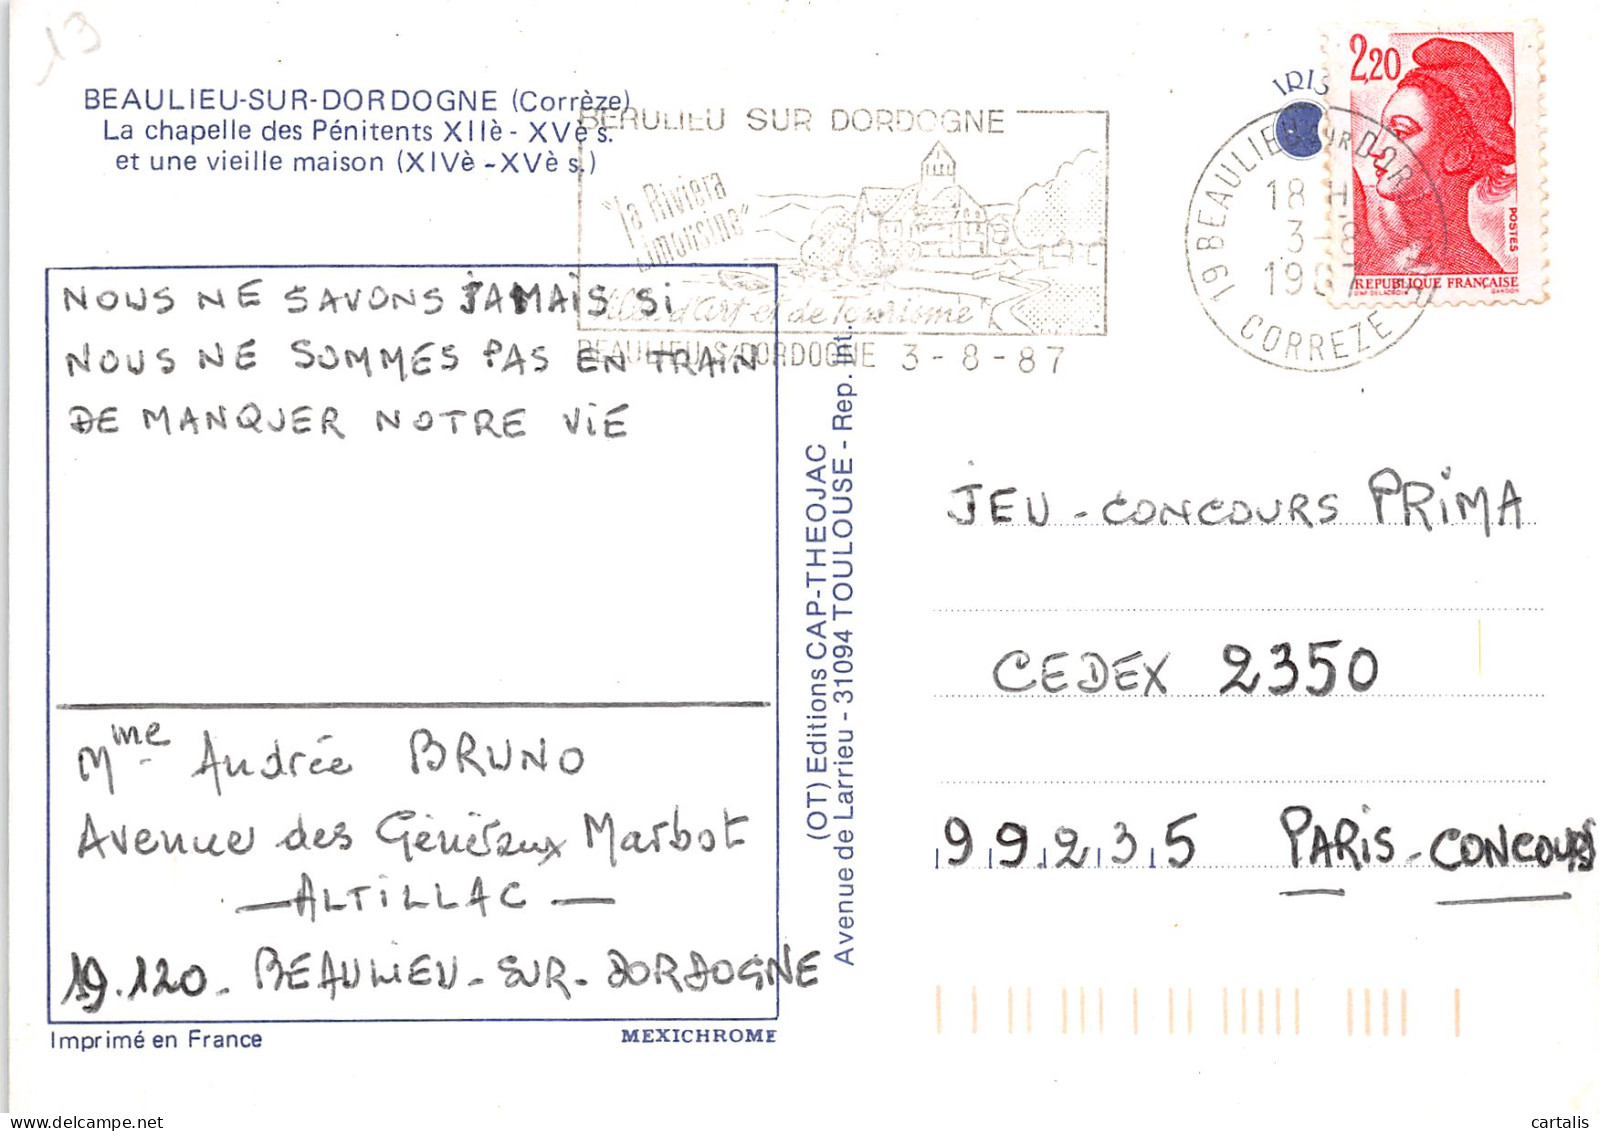 13
BEAULIEU-SUR-DORDOGNE (Corrèze)
La chapelle des Pénitents XIIè - XVè s.
et une vieille maison (XIVè - XVè s.)
BEAULIEU SUR DORDOGNE
"la Riviera
Limousine"
Ville d'Art et de Tourisme
BEAULIEU S/DORDOGNE 3-8-87
IRIS
2,20
POSTES
REPUBLIQUE FRANÇAISE
D'AP. DELACROIX GANDON
19 BEAULIEU SUR DORDOGNE
18 H
3-8
1987
CORREZE
NOUS NE SAVONS JAMAIS SI
NOUS NE SOMMES PAS EN TRAIN
DE MANQUER NOTRE VIE
Mme Andrée BRUNO
Avenue des Généraux Marbot
— ALTILLAC —
19.120 - BEAULIEU-SUR-DORDOGNE
Imprimé en France
MEXICHROME
(OT) Editions CAP-THEOJAC
Avenue de Larrieu - 31094 TOULOUSE - Rep. Int.
JEU-CONCOURS PRIMA
CEDEX 2350
99235 PARIS-CONCOURS
cartalis